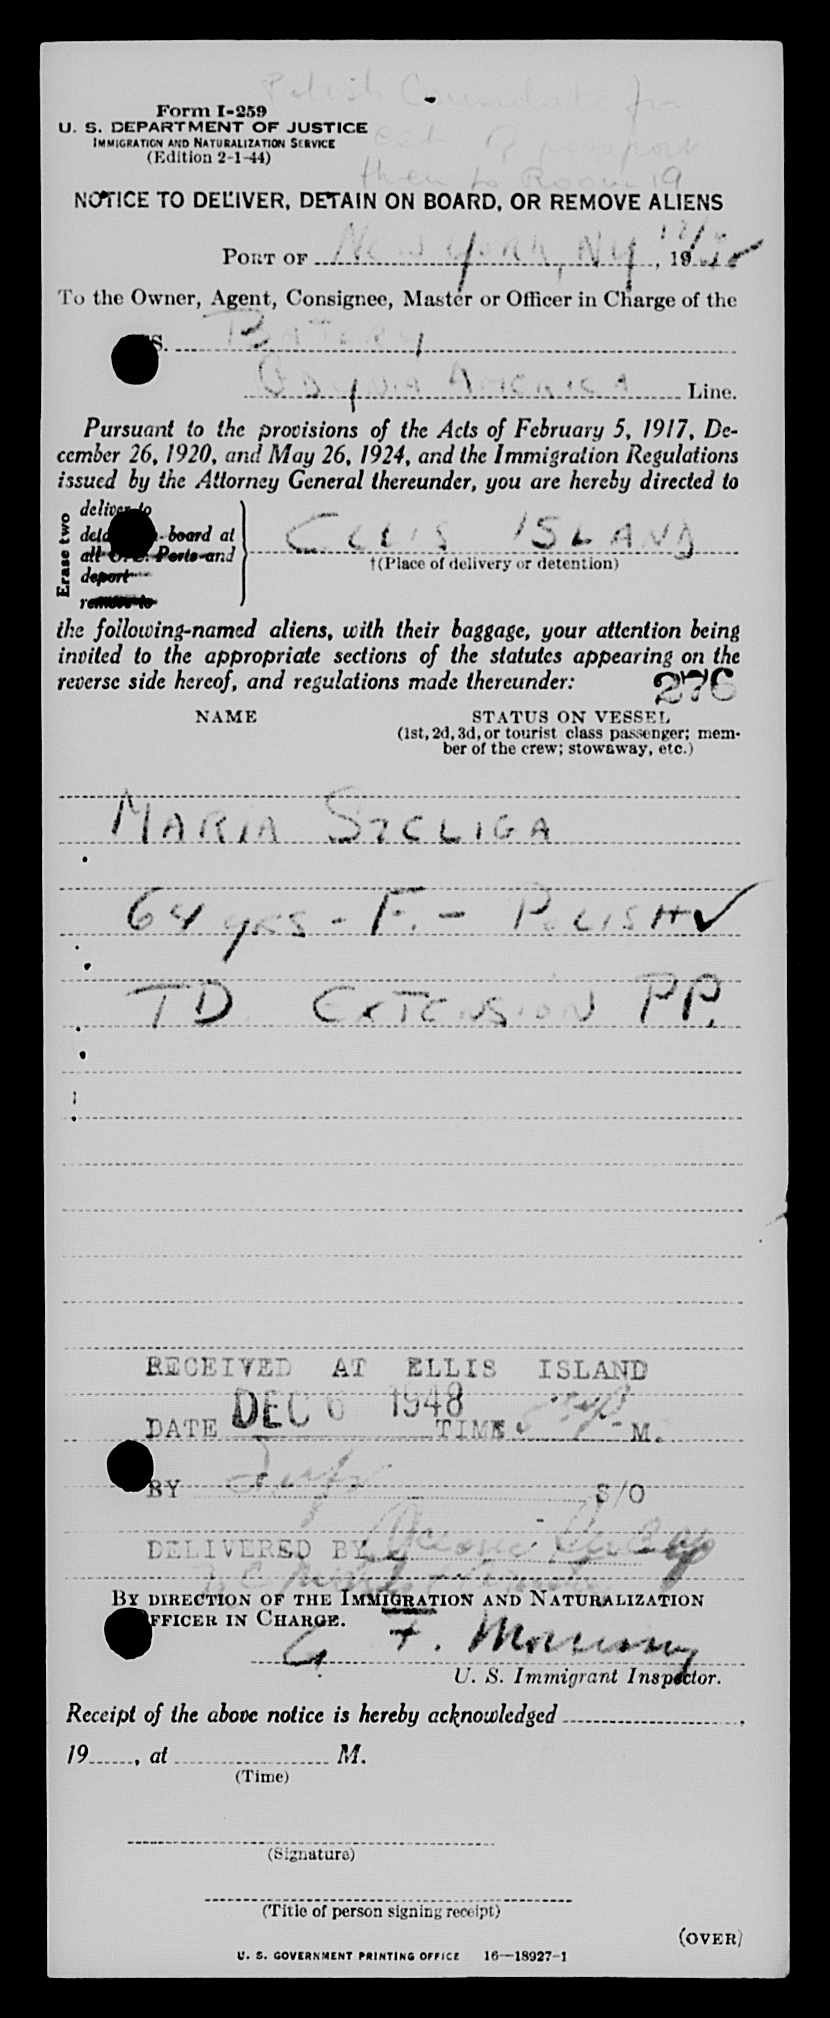 Polish Consulate for
ext. of passport
then to Room 19
Form I-259
U. S. DEPARTMENT OF JUSTICE
IMMIGRATION AND NATURALIZATION SERVICE
(Edition 2-1-44)
NOTICE TO DELIVER, DETAIN ON BOARD, OR REMOVE ALIENS
PORT OF New York, NY, 19
To the Owner, Agent, Consignee, Master or Officer in Charge of the
S. BATORY
GDYNIA AMERICA Line.
Pursuant to the provisions of the Acts of February 5, 1917, De-
cember 26, 1920, and May 26, 1924, and the Immigration Regulations
issued by the Attorney General thereunder, you are hereby directed to
Erase two
deliver to
board at
all U. S. Ports and
deport
remove to
ELLIS ISLAND
†(Place of delivery or detention)
the following-named aliens, with their baggage, your attention being
invited to the appropriate sections of the statutes appearing on the
reverse side hereof, and regulations made thereunder: 276
NAME STATUS ON VESSEL
(1st, 2d, 3d, or tourist class passenger; mem-
ber of the crew; stowaway, etc.)
MARIA SZELIGA
64 yrs - F. - POLISH ✓
TD EXTENSION PP.
RECEIVED AT ELLIS ISLAND
DATE DEC 6 1948 TIME M.
BY S/O
DELIVERED BY
BY DIRECTION OF THE IMMIGRATION AND NATURALIZATION
OFFICER IN CHARGE.
U. S. Immigrant Inspector.
Receipt of the above notice is hereby acknowledged ,
19 , at M.
(Time)
(Signature)
(Title of person signing receipt)
(OVER)
U. S. GOVERNMENT PRINTING OFFICE 16—18927-1